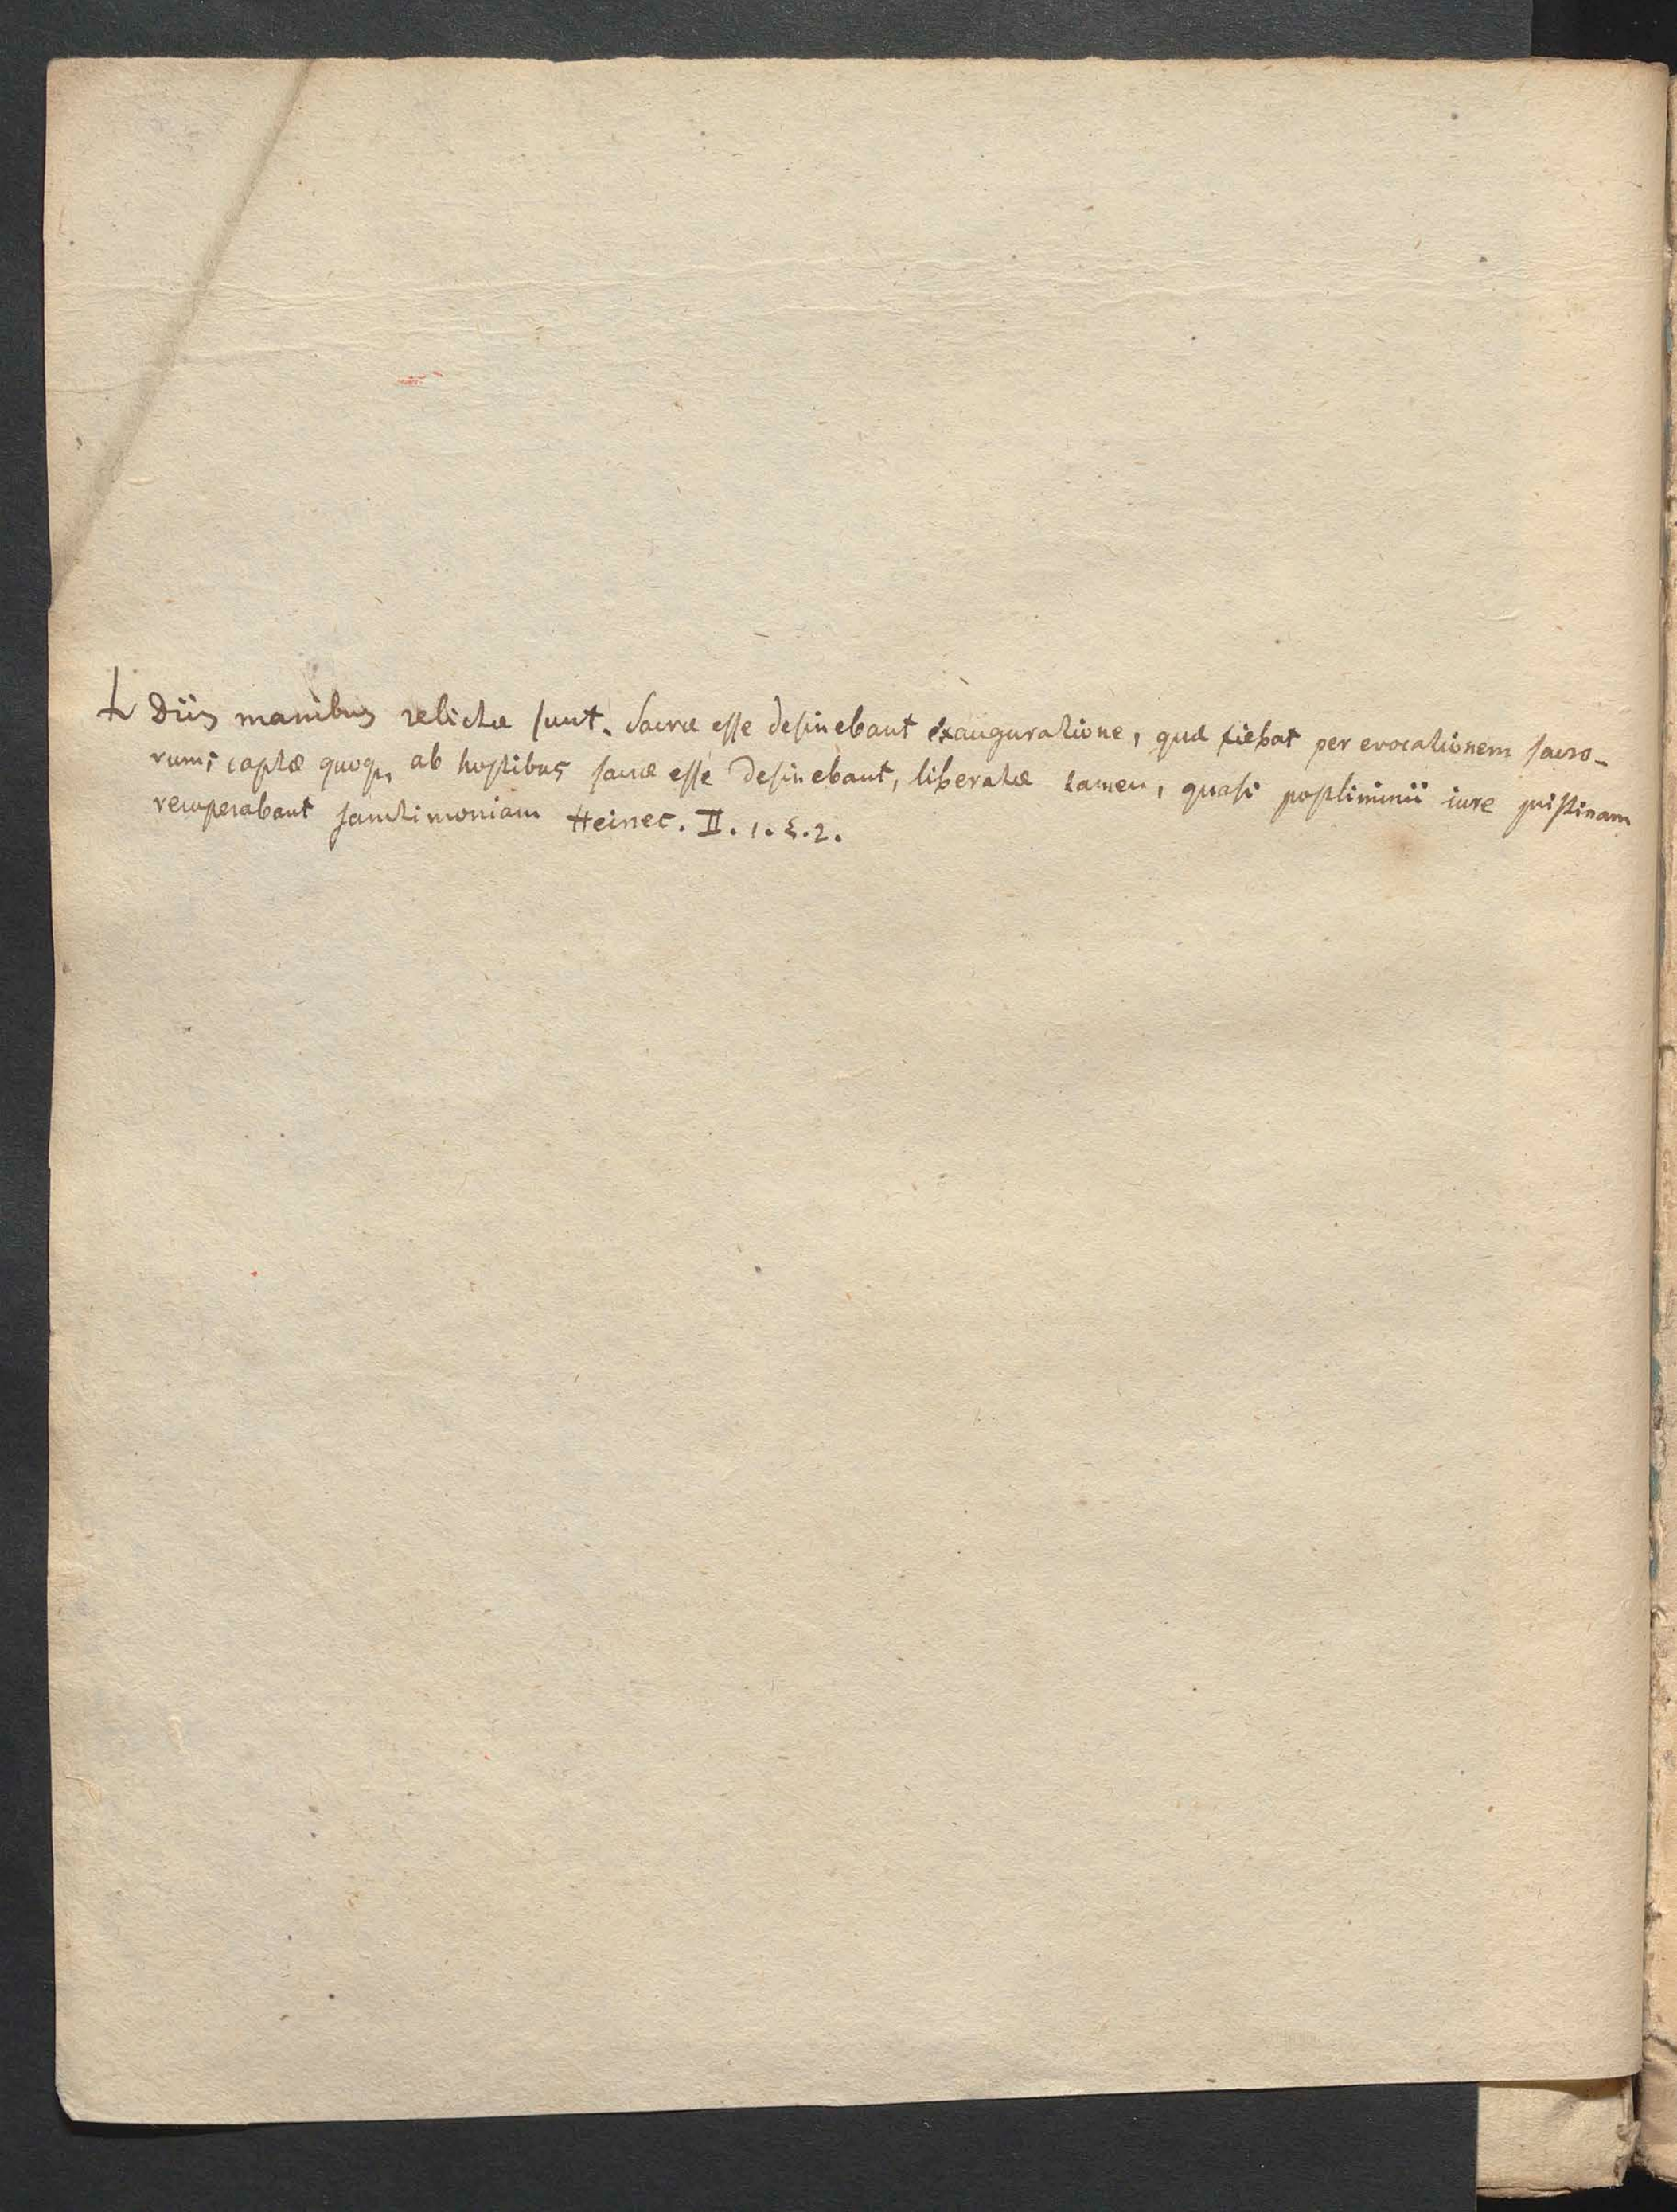 Diis manibus relictæ sunt. Sacræ esse desinebant exauguratione, quæ fiebat per evocationem sacro-
rum; captæ quoq, ab hostibus sacræ esse desinebant, liberatæ tamen, quasi postliminii iure pristinam
recuperabant sanctimoniam Heinec. II. 1. §. 2.